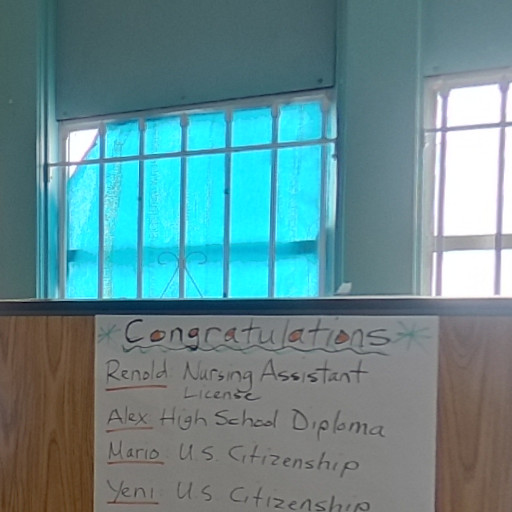 Congratulations
Renold: Nursing Assistant
License
Alex: High School Diploma
Mario: U.S. Citizenship
Yeni: U.S. Citizenship